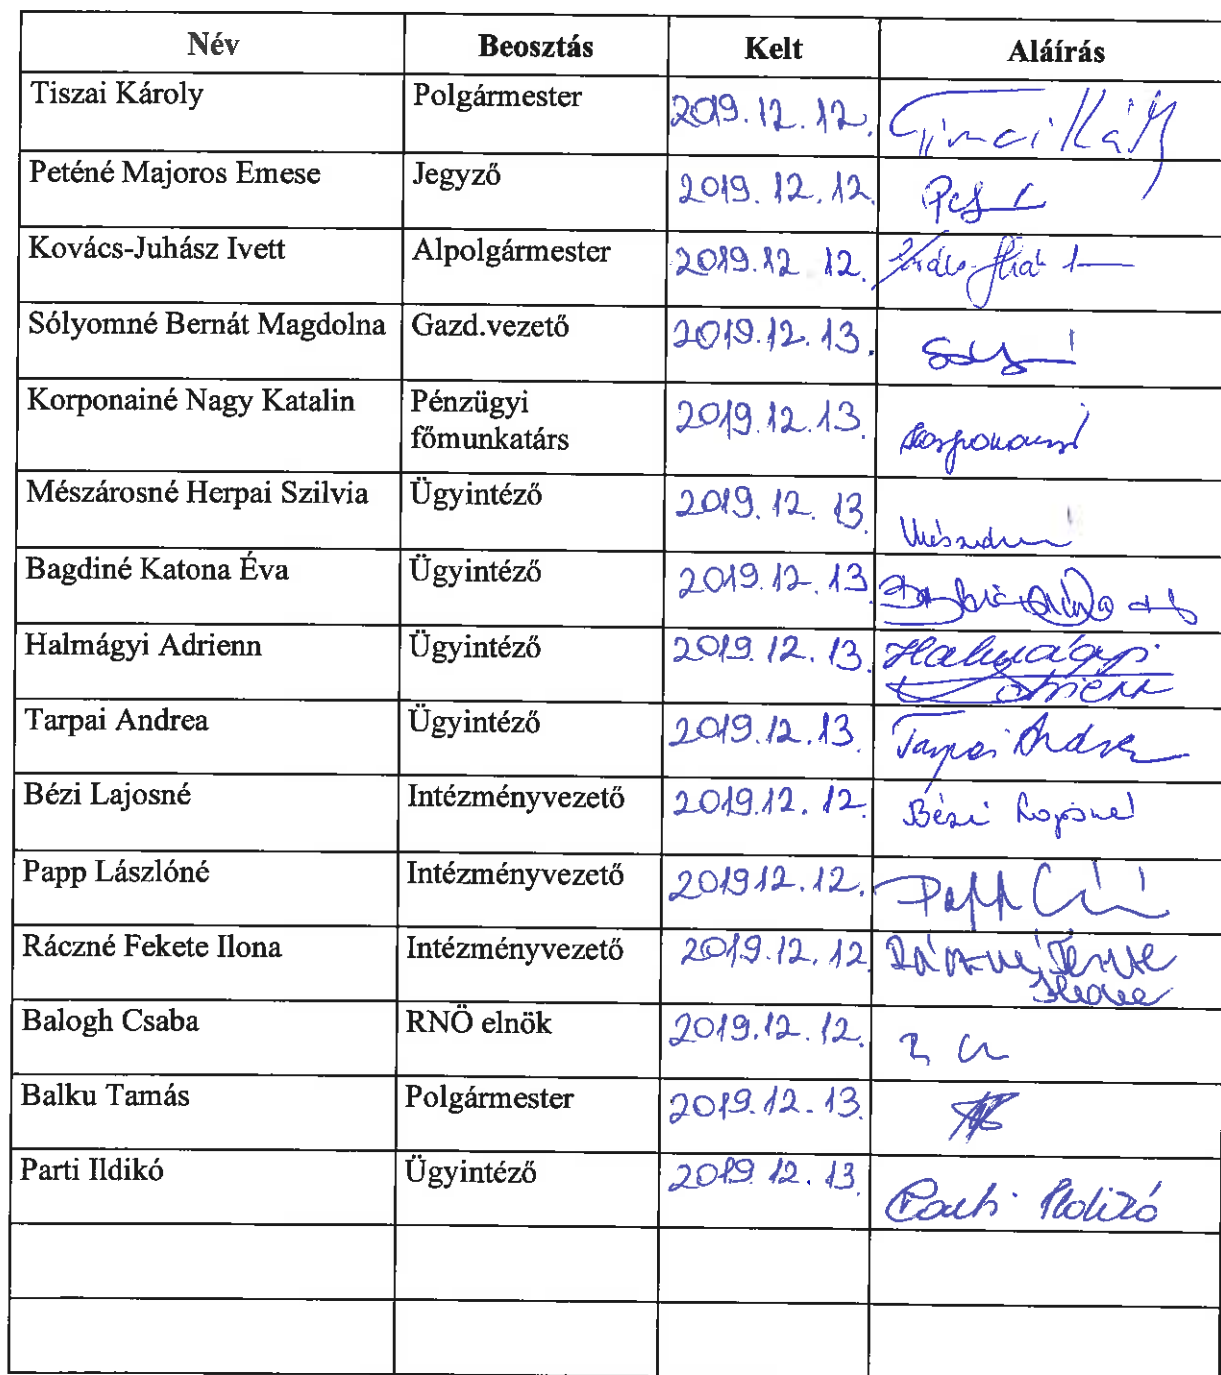 Név Beosztás Kelt Aláírás
Tiszai Károly Polgármester 2019.12.12.
Peténé Majoros Emese Jegyző 2019.12.12.
Kovács-Juhász Ivett Alpolgármester 2019.12 12.
Sólyomné Bernát Magdolna Gazd.vezető 2019.12.13.
Korponainé Nagy Katalin Pénzügyi 2019.12.13. Korponainé
főmunkatárs
Mészárosné Herpai Szilvia Ügyintéző 2019.12.13.
Bagdiné Katona Éva Ügyintéző 2019.12.13.
Halmágyi Adrienn Ügyintéző 2019.12.13. Halmágyi
Adrienn
Tarpai Andrea Ügyintéző 2019.12.13. Tarpai Andrea
Bézi Lajosné Intézményvezető 2019.12.12. Bézi Lajosné
Papp Lászlóné Intézményvezető 201912.12. Papp
Ráczné Fekete Ilona Intézményvezető 2019.12.12 Ráczné Fekete
Ilona
Balogh Csaba RNÖ elnök 2019.12.12.
Balku Tamás Polgármester 2019.12.13.
Parti Ildikó Ügyintéző 2019.12.13. Parti Ildikó